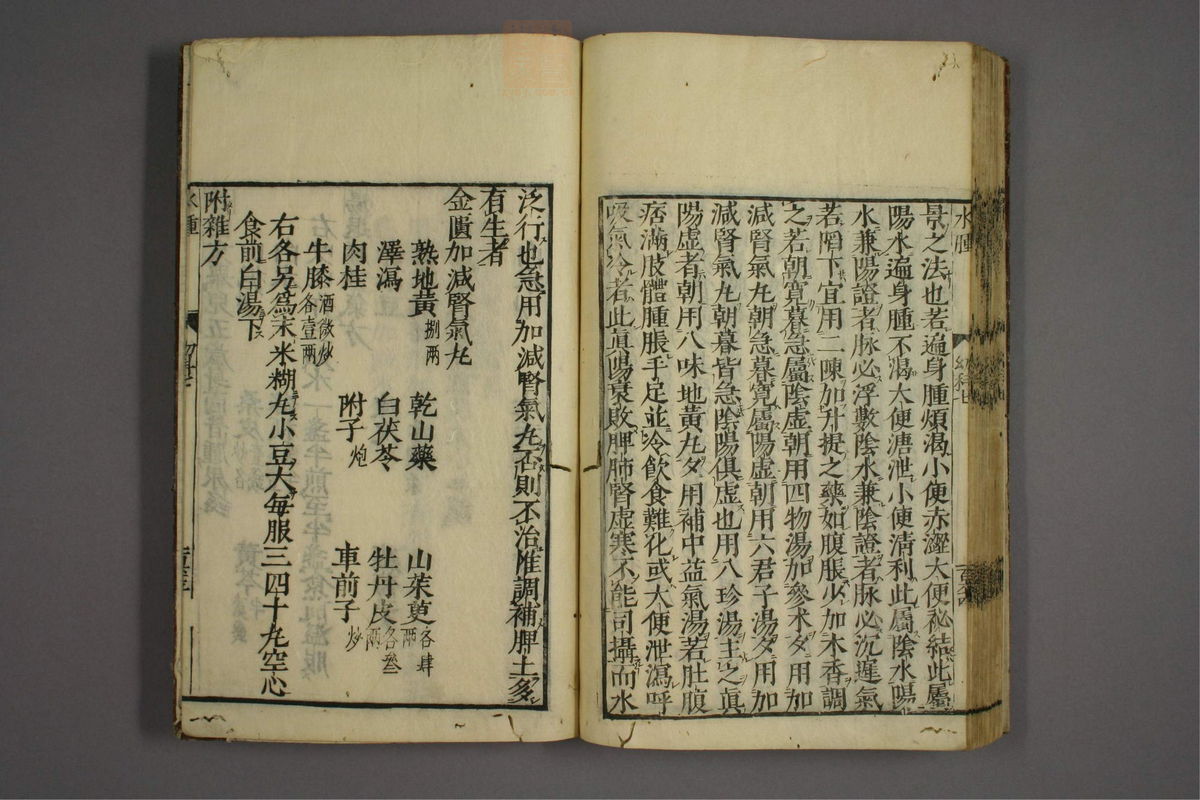 水腫
景之法也若遍身腫煩渴小便赤澀大便祕結此屬
陽水遍身腫不渴大便溏泄小便清利此屬陰水陽
水兼陽證者脉必浮數陰水兼陰證者脉必沉遲氣
若陷下宜用二陳加升提之藥如腹脹少加木香調
之若朝寬暮急屬陰虛朝用四物湯加參朮夕用加
減腎氣丸朝急暮寬屬陽虛朝用六君子湯夕用加
減腎氣丸朝暮皆急陰陽俱虛也用八珍湯主之眞
陽虛者朝用八味地黄丸夕用補中益氣湯若肚腹
痞滿肢體腫脹手足並冷飲食難化或大便泄瀉呼
吸氣冷者此眞陽衰敗脾肺腎虛寒不能司攝而水
泛行也急用加減腎氣丸否則不治惟調補脾土多
有生者
金匱加減腎氣丸
熟地黄捌兩 乾山藥 山茱萸各肆兩
澤瀉 白茯苓 牡丹皮各叁兩
肉桂 附子炮 車前子炒
牛膝酒微炒各壹兩
右各另爲末米糊丸小豆大每服三四十丸空心
食前白湯下
附雜方
水腫